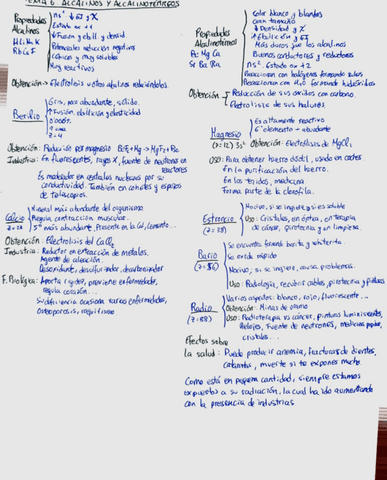 TEMA 6 ALCALINOS Y ALCALINOTÉRREOS
Propiedades
Alcalinos
H Li Na K
Rb Cs F
ns¹
Estado ox +1
Fusión y ebull. y densid.
Potenciales reducción negativos
muy solubles
Muy reactivos
Obtención → Electrolisis
Berilio
Gris, poco abundante, sólido.
↑ Fusión, ebullición y elasticidad
Z=4
Obtención: Reducción por magnesio BeF₂+Mg → MgF₂+Be
Industria: En fluorescentes, rayos X, fuente de neutrones en
reactores
Es moderador en centrales nucleares por su
conductividad. También en cohetes y espejos
de telescopios.
Calcio
Z=20
Mineral más abundante del organismo
Regula contracción muscular.
5º más abundante, presente en la cal, cemento...
Obtención: Electrolisis del CaCl₂
Industria: Reductor en extracción de metales.
Agente de aleación.
Desoxidante, desulfurizador, decarbonizador
F. Biológica: Aporta rigidez, previene enfermedades,
regula corazón...
Su deficiencia ocasiona varias enfermedades,
Osteoporosis, raquitismo
Propiedades
Alcalinotérreos
Be Mg Ca
Sr Ba Ra
Color blanco y blandos
Gran tamaño
↓ Densidad y X
Más duros que los alcalinos
Buenos conductores y reductores
ns². Estado ox +2
Reaccionan con halógenos formando sales
Reaccionan con H₂O formando hidróxidos
Obtención
Reducción de sus óxidos con carbono.
Electrolisis de sus haluros
Magnesio
(Z=12) 3s²
Es altamente reactivo
6º elemento + abundante
Obtención: Electrolisis de MgCl₂
Uso: Para obtener hierro dúctil, usado en coches
En la purificación del hierro.
En los tejidos, medicina
Forma parte de la clorofila.
Estroncio
(Z=38)
Nocivo, si se ingiere y si es soluble
Uso: Cristales, en óptica, en terapia
de cáncer, pirotecnia y en limpieza.
Bario
(Z=56)
Se encuentra formando barita y whiterita.
Se oxida rápido
Nocivo, si se ingiere, causa problemas.
Uso: Radiología, recubrir cables, pirotecnia y pinturas
Radio
(Z=88)
Varios aspectos: blanco, rojo, fluorescente...
Obtención: Minas de uranio
Uso: Radioterapia vs cáncer, pinturas luminiscentes,
Relojes, fuente de neutrones, medicinas populares,
cristales...
Efectos sobre
la salud: Puede producir anemia, fracturas de dientes,
cataratas, muerte si te expones mucho.
Como está en pequeña cantidad, siempre estamos
expuestos a su radiación, la cual ha ido aumentando
con la presencia de industrias